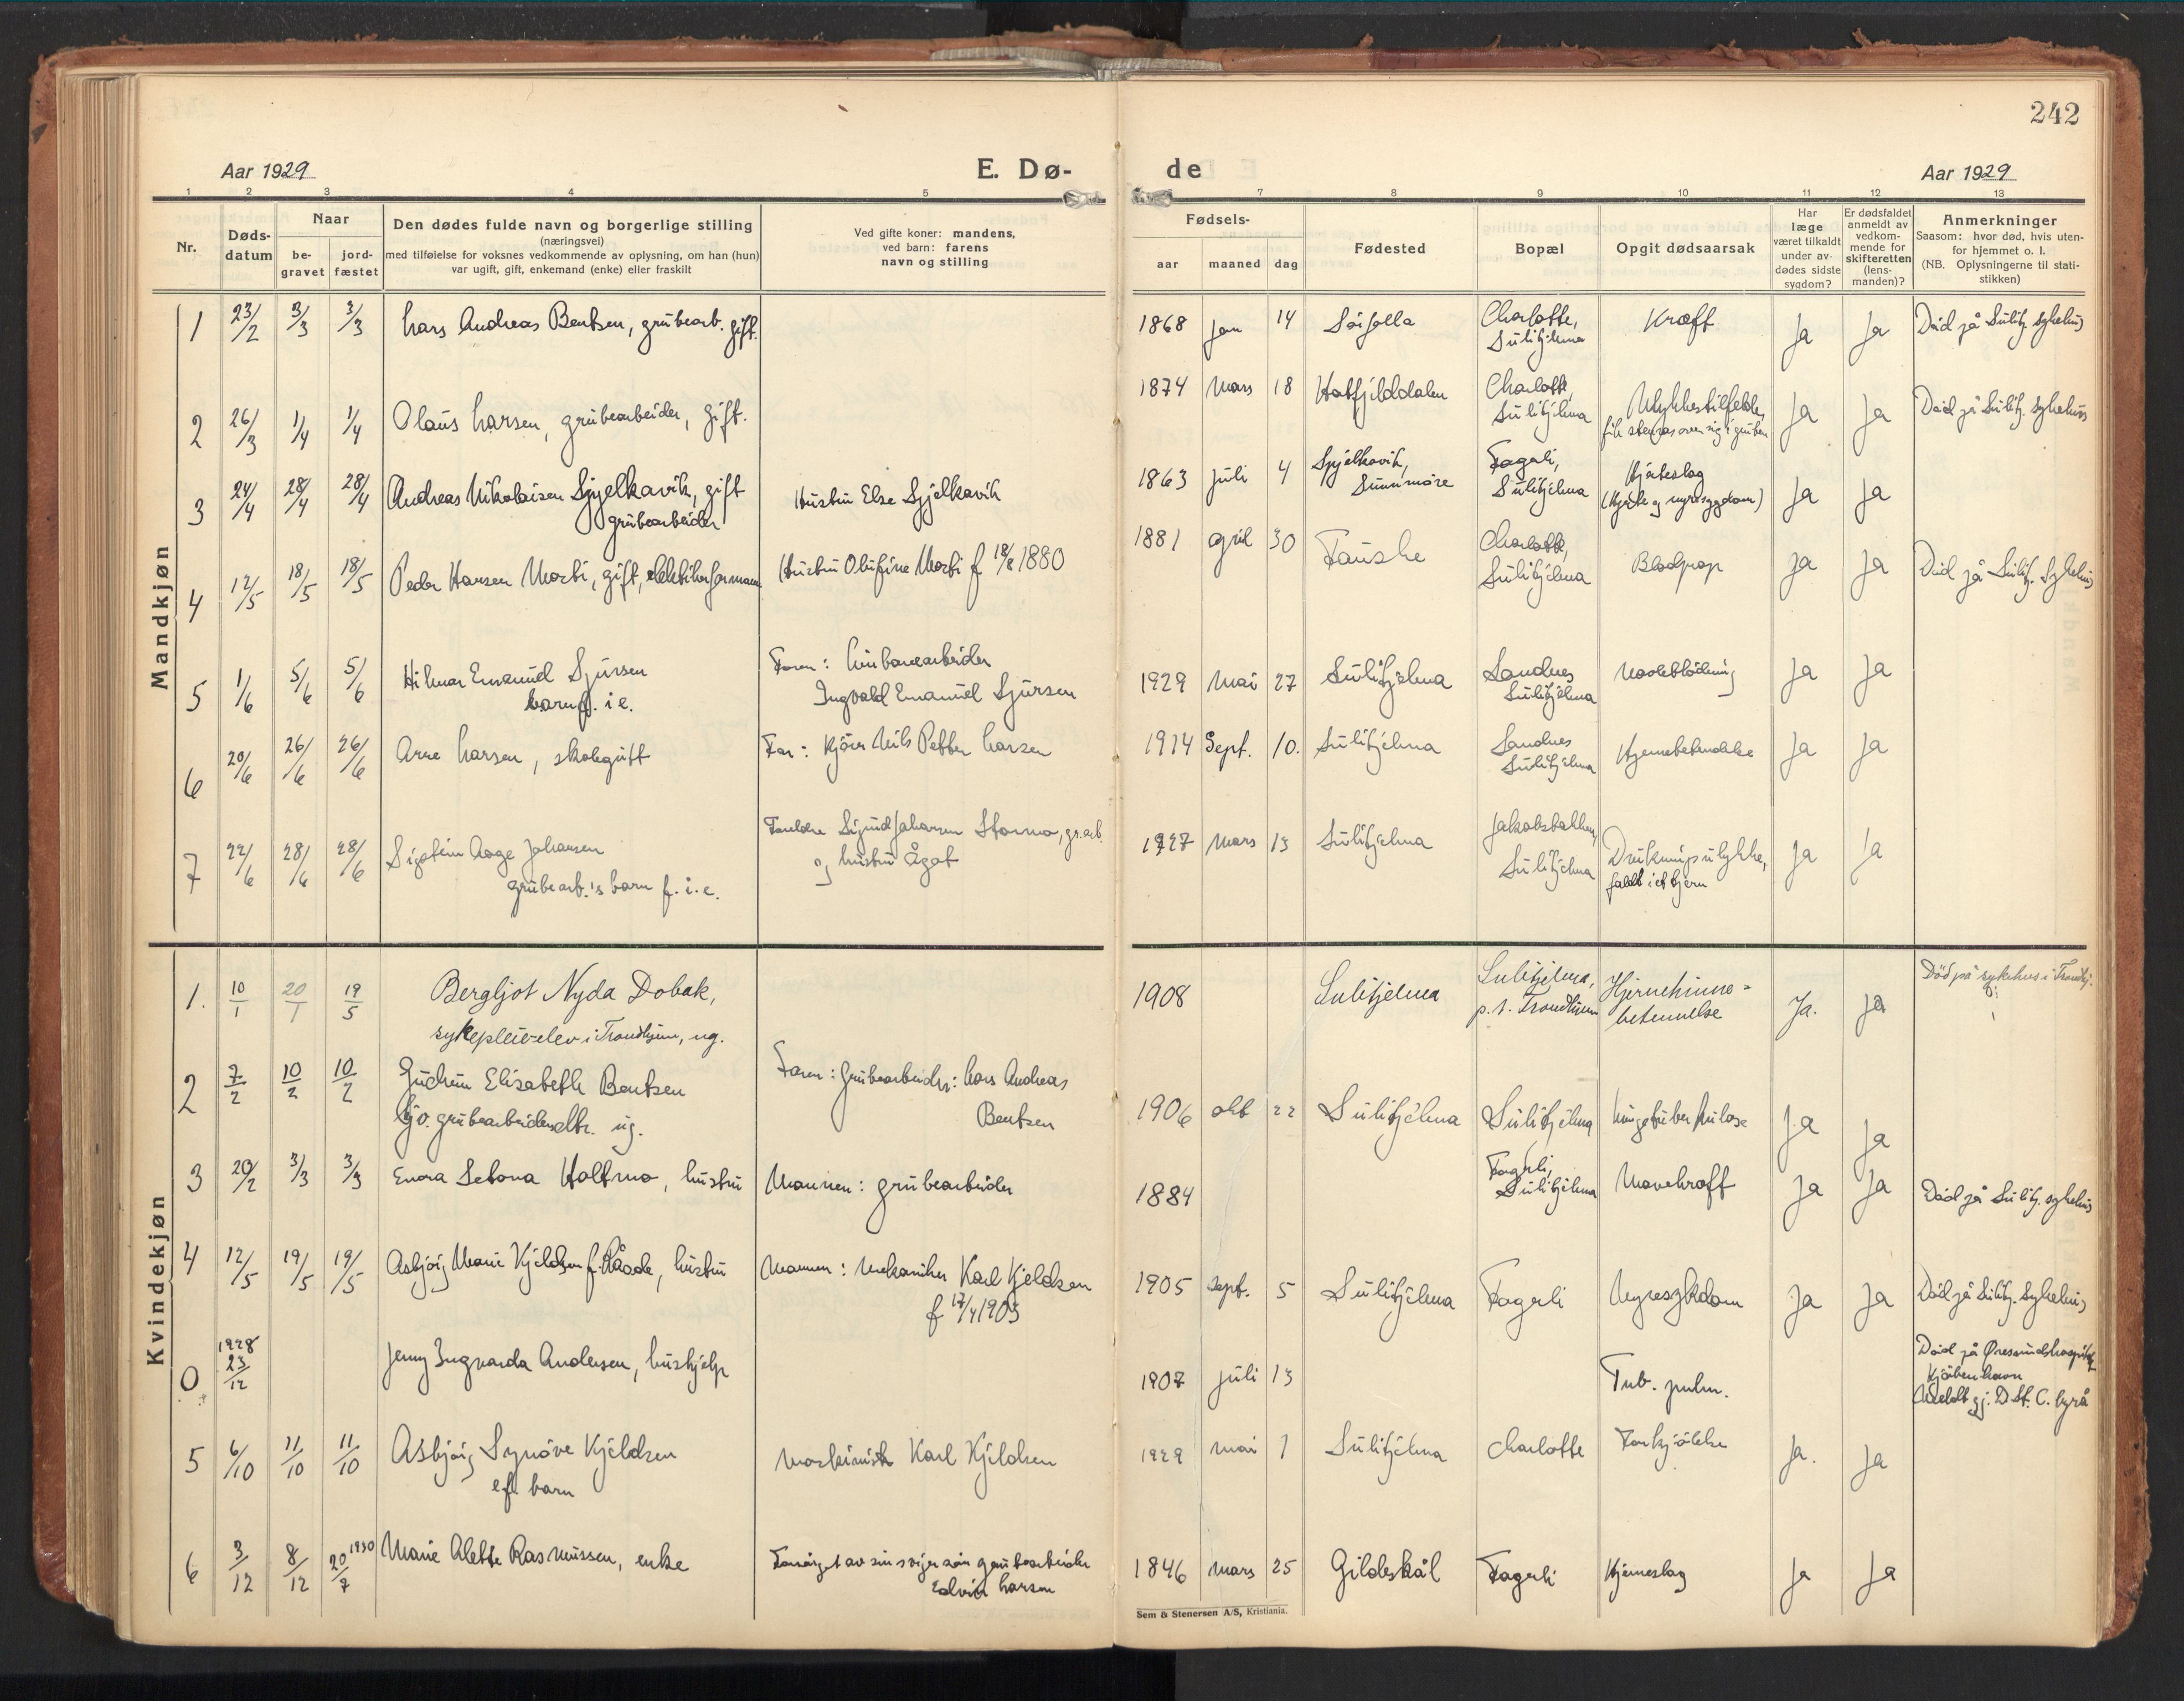 242
Aar 1929
E. Dø-
de
Aar 1929
1 2 3 4 5 6 7 8 9 10 11 12 13
Nr.
Døds-
datum
Naar
be-
gravet
jord-
fæstet
Den dødes fulde navn og borgerlige stilling
(næringsvei)
med tilføielse for voksnes vedkommende av oplysning, om han (hun)
var ugift, gift, enkemand (enke) eller fraskilt
Ved gifte koner: mandens,
ved barn: farens
navn og stilling
Fødsels-
aar maaned dag
Fødested
Bopæl
Opgit dødsaarsak
Har
læge
været tilkaldt
under av-
dødes sidste
sygdom?
Er dødsfaldet
anmeldt av
vedkom-
mende for
skifteretten
(lens-
manden)?
Anmerkninger
Saasom: hvor død, hvis uten-
for hjemmet o. l.
(NB. Oplysningerne til stati-
stikken)
Mandkjøn
1 23/2 3/3 3/3 Lars Andreas Bentsen, grubearb. gift. 1868 jan 14 Sörfolla Charlotte, Kræft Ja Ja Död på Sulitj. sykehus
Sulitjelma
2 26/3 1/4 1/4 Olaus Larsen, grubearbeider, gift. 1874 Mars 18 Hatfjelddalen Charlotte, Ulykkestilfelde, Ja Ja Död på Sulitj. sykehus
Sulitjelma fik stenras over sig i gruben
3 24/4 28/4 28/4 Andreas Nikolaisen Spjelkavik, gift Hustru Else Spjelkavik 1863 juli 4 Spjelkavik, Fagerli, Hjerteslag Ja Ja
grubearbeider Sunnmöre Sulitjelma (Hjerte og nyresygdom)
4 12/5 18/5 18/5 Peder Hansen Morti, gift, elektikerformann Hustru Olufine Morti f 18/8 1880 1881 april 30 Fauske Charlotte, Blodprop Ja Ja Död på Sulitj. Sykehus
Sulitjelma
5 1/6 5/6 5/6 Hilmar Emanuel Sjursen Faren: Linbanearbeider 1929 Mai 27 Sulitjelma Sandnes Navleblödning Ja Ja
barn f. i e. Ingvald Emanuel Sjursen Sulitjelma
6 20/6 26/6 26/6 Arne Larsen, skolegutt Far: Kjörer Nils Petter Larsen 1914 Sept. 10. Sulitjelma Sandnes Hjernebetendelse Ja Ja
Sulitjelma
7 22/6 28/6 28/6 Sigstein Aage Johansen Foreldre Sigurd Johansen Stormo, gr.arb. 1927 Mars 13 Sulitjelma Jakobsbakken, Drukningsulykke, Ja Ja
grubearb.'s barn f. i. e. og hustru Ågot Sulitjelma faldt i et tjern
Kvindekjøn
1. 10/1 20/1 19/5 Bergljot Nyda Dobak, 1908 Sulitjelma Sulitjelma, Hjernehinne= Ja. Ja Död på sykehus i Trondhj.
sykepleie-elev i Trondhjem, ug. p. t. Trondhjem betennelse
2 7/2 10/2 10/2 Gudrun Elisabeth Bentsen Faren: Grubearbeider: Lars Andreas 1906 okt 22 Sulitjelma Sulitjelma Lungetuberkulose Ja Ja
Gv. grubearbeiderdtr. ug. Bentsen
3 20/2 3/3 3/3 Enora Setona Holtmo, hustru Mannen: grubearbeider 1884 Fagerli, Mavekræft Ja Ja Död på Sulitj. sykehus
Sulitjelma
4 12/5 19/5 19/5 Asbjörg Marie Kjeldsen f. Råade, hustru Mannen: Mekaniker Karl Kjeldsen 1905 sept. 5 Sulitjelma Fagerli Nyresykdom Ja Ja Död på Sulitj. Sykehus
f 17/4 1903
0 1928 23/12 Jenny Ingvarda Andersen, hushjelp 1907 juli 13 Tub. pulm. Död på Øresundshospital
Kjöbenhavn
Meldt gj. D St. C. byrå
5 6/10 11/10 11/10 Asbjörg Synöve Kjeldsen Maskinist Karl Kjeldsen 1929 mai 1 Sulitjelma Charlotte Forkjölelse Ja. Ja
ef. barn
6 3/12 8/12 20/7 1930 Marie Alette Rasmussen, enke Forsörget av sin svigersön grubearbeider 1846 Mars 25 Gildeskål Fagerli Hjerneslag Ja Ja
Edvin Larsen
Sem & Stenersen A/S, Kristiania.